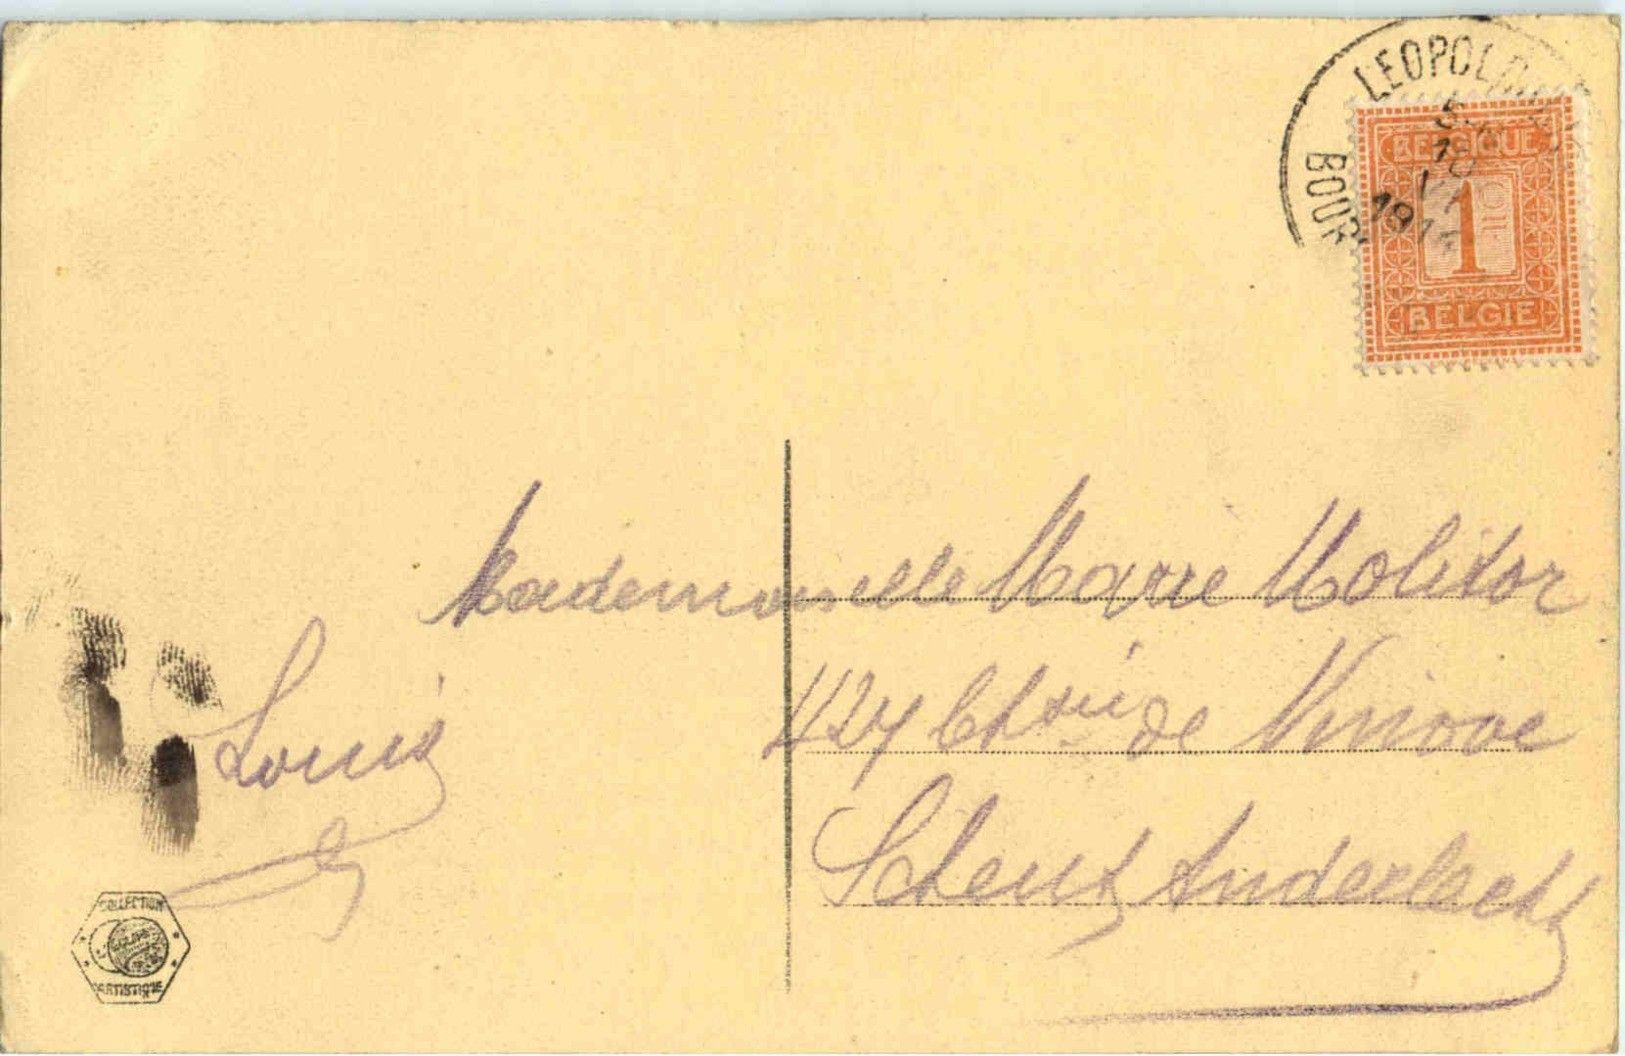 LEOPOL
BOUR
BELGIQUE
1
BELGIE
Mademoiselle Marie Molitor
427 Chsée de Ninove
Scheut Anderlecht
Louis
COLLECTION
ARTISTIQUE